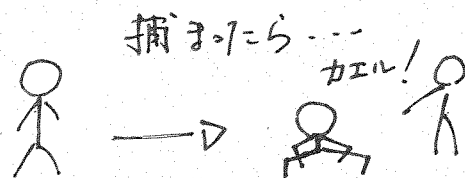 捕まったら・・・
カエル!